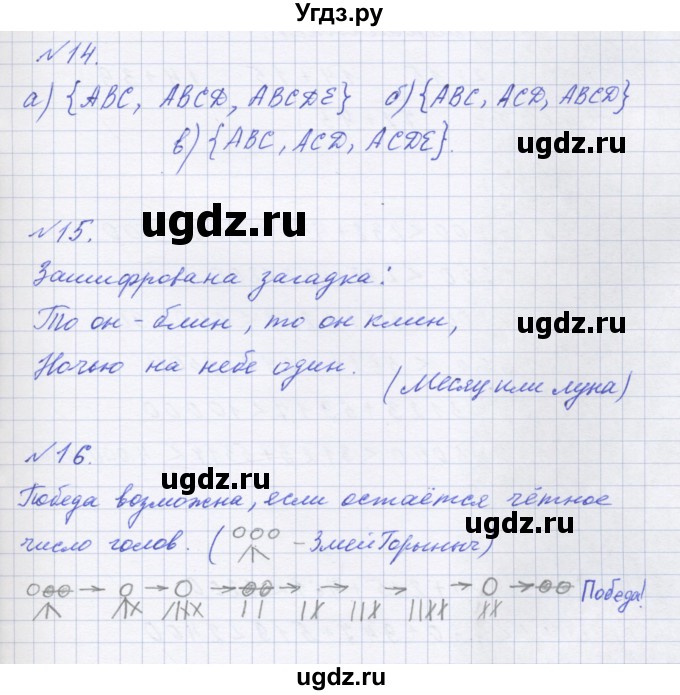 Угдз.ру
№14.
а) {ABC, ABCD, ABCDE} б) {ABC, ACD, ABCD}
ugdz.ru
в) {ABC, ACD, ACDE}.
ugdz.ru
№15.
Зашифрована загадка:
То он - блин, то он клин,
ugdz.ru
Ночью на небе один.
(Месяц или луна)
№16.
ugdz.ru
Победа возможна, если остаётся чётное
ugdz.ru
число голов. ( - Змей Горыныч)
Победа!
ugdz.ru
ugdz.ru